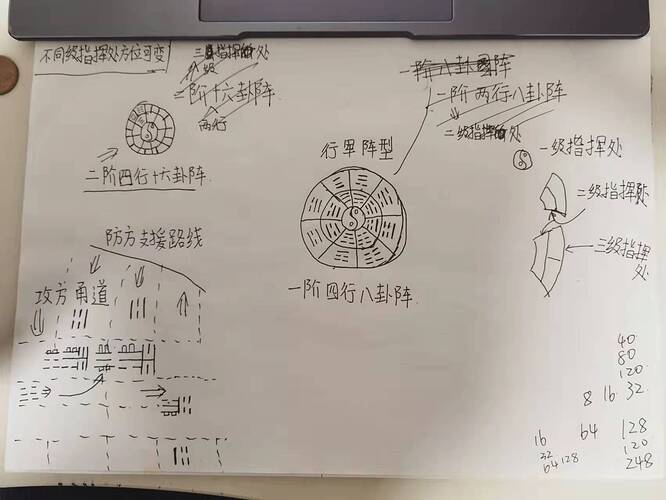 不同级指挥处方位可变
三
指挥
处
阶级
二阶十六卦阵
两行
二阶四行十六卦阵
一阶八卦
阵
一阶两行八卦阵
二级指挥
处
行军阵型
一阶四行八卦阵
一级指挥处
二级指挥处
三级指挥
处
防方支援路线
攻方甬道
40
80
120
8 16 32
16 64 128
32 120
64 128 248